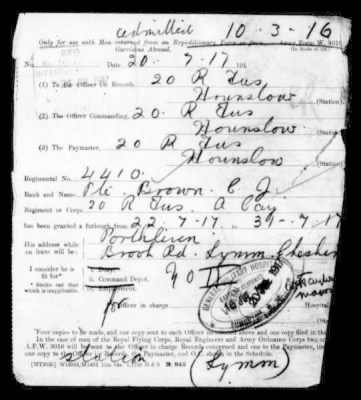 admitted 10-3-16
Only for use with Men returned from an Expeditionary Force or from Army Form W. 3016
Garrisons Abroad.
No. Date 20-7-17 191
(1) To the Officer i/c Records, 20 R Fus
Hounslow (Station)
(2) The Officer Commanding, 20. R Fus
Hounslow (Station)
(3) The Paymaster, 20 R Fus
Hounslow (Station)
Regimental No. 4410.
Rank and Name Pte. Brown. C. J.
Regiment or Corps 20 R Fus. A Coy
has been granted a furlough from 22-7-17 to 31-7-17
His address while
on leave will be:
Brook Rd. Lymm. Cheshire
I consider he is
fit for*
i. Duty.
ii. Command Depot.
* Strike out that
which is inapplicable.
for Officer in charge Hospital
Your copies to be made, and one copy sent to each Officer and one copy filed in the
In case of men of the Royal Flying Corps, Royal Engineers and Army Ordnance Corps two
A.F.W. 3016 will be sent to the Officer in charge Records concerned and one to the Paymaster,
one copy to the Officer i/c Records, Paymaster, and O.C. shown in the Schedule.
station (Lymm)